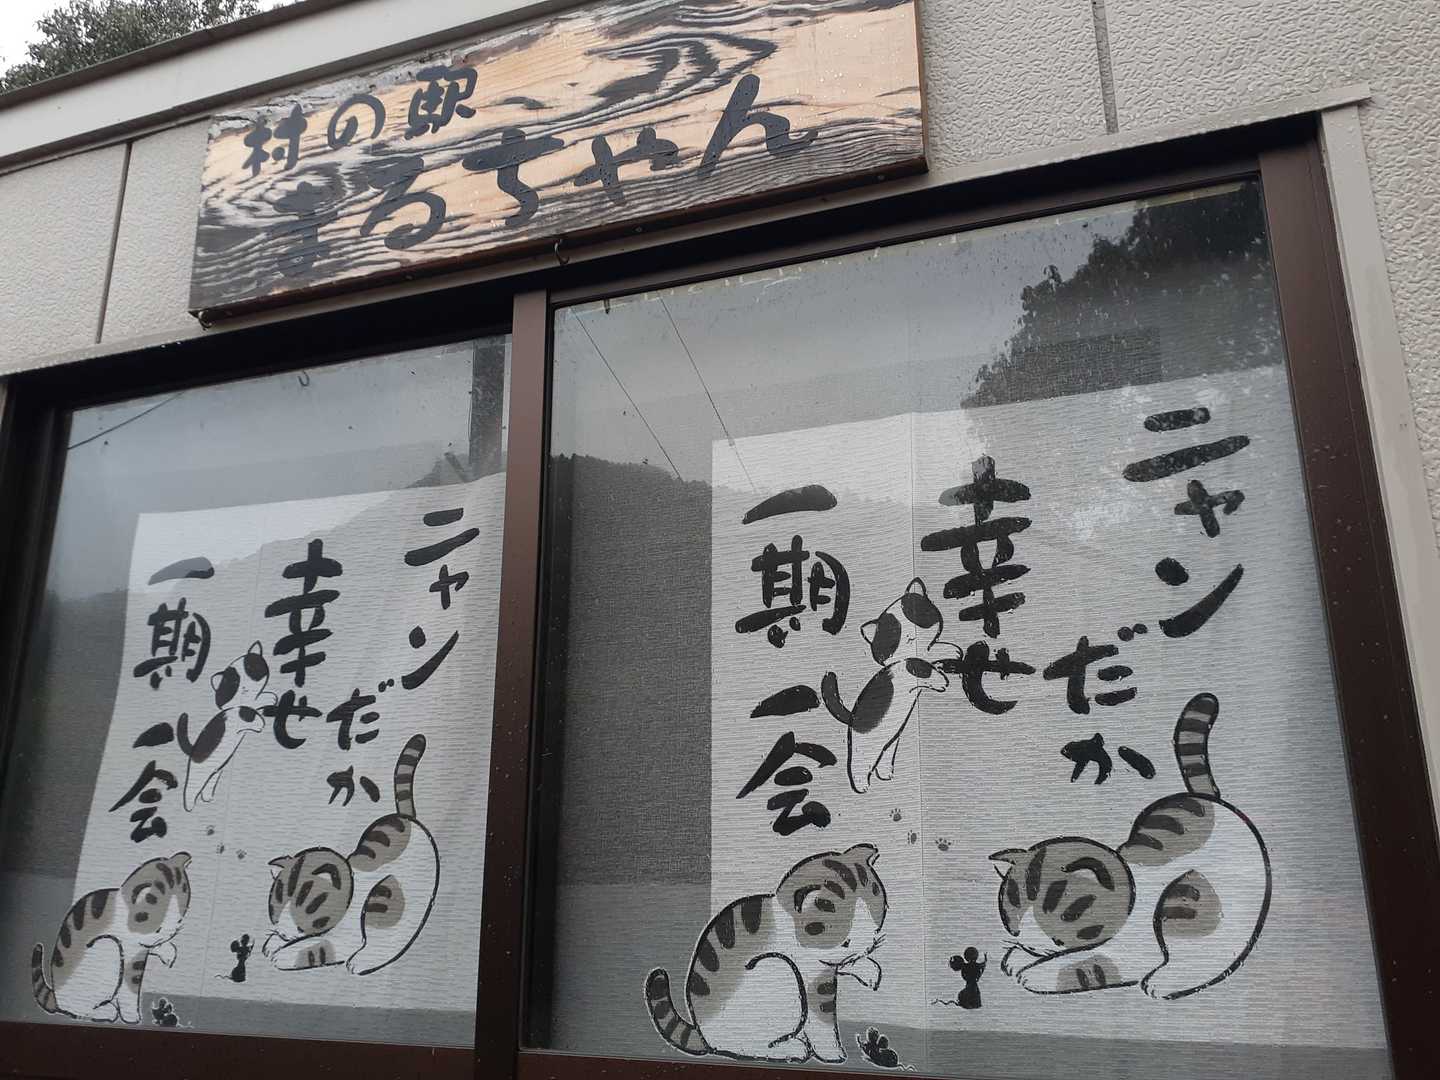 村の駅
まるちゃん
ニャンだか
幸せ
一期一会
ニャンだか
幸せ
一期一会